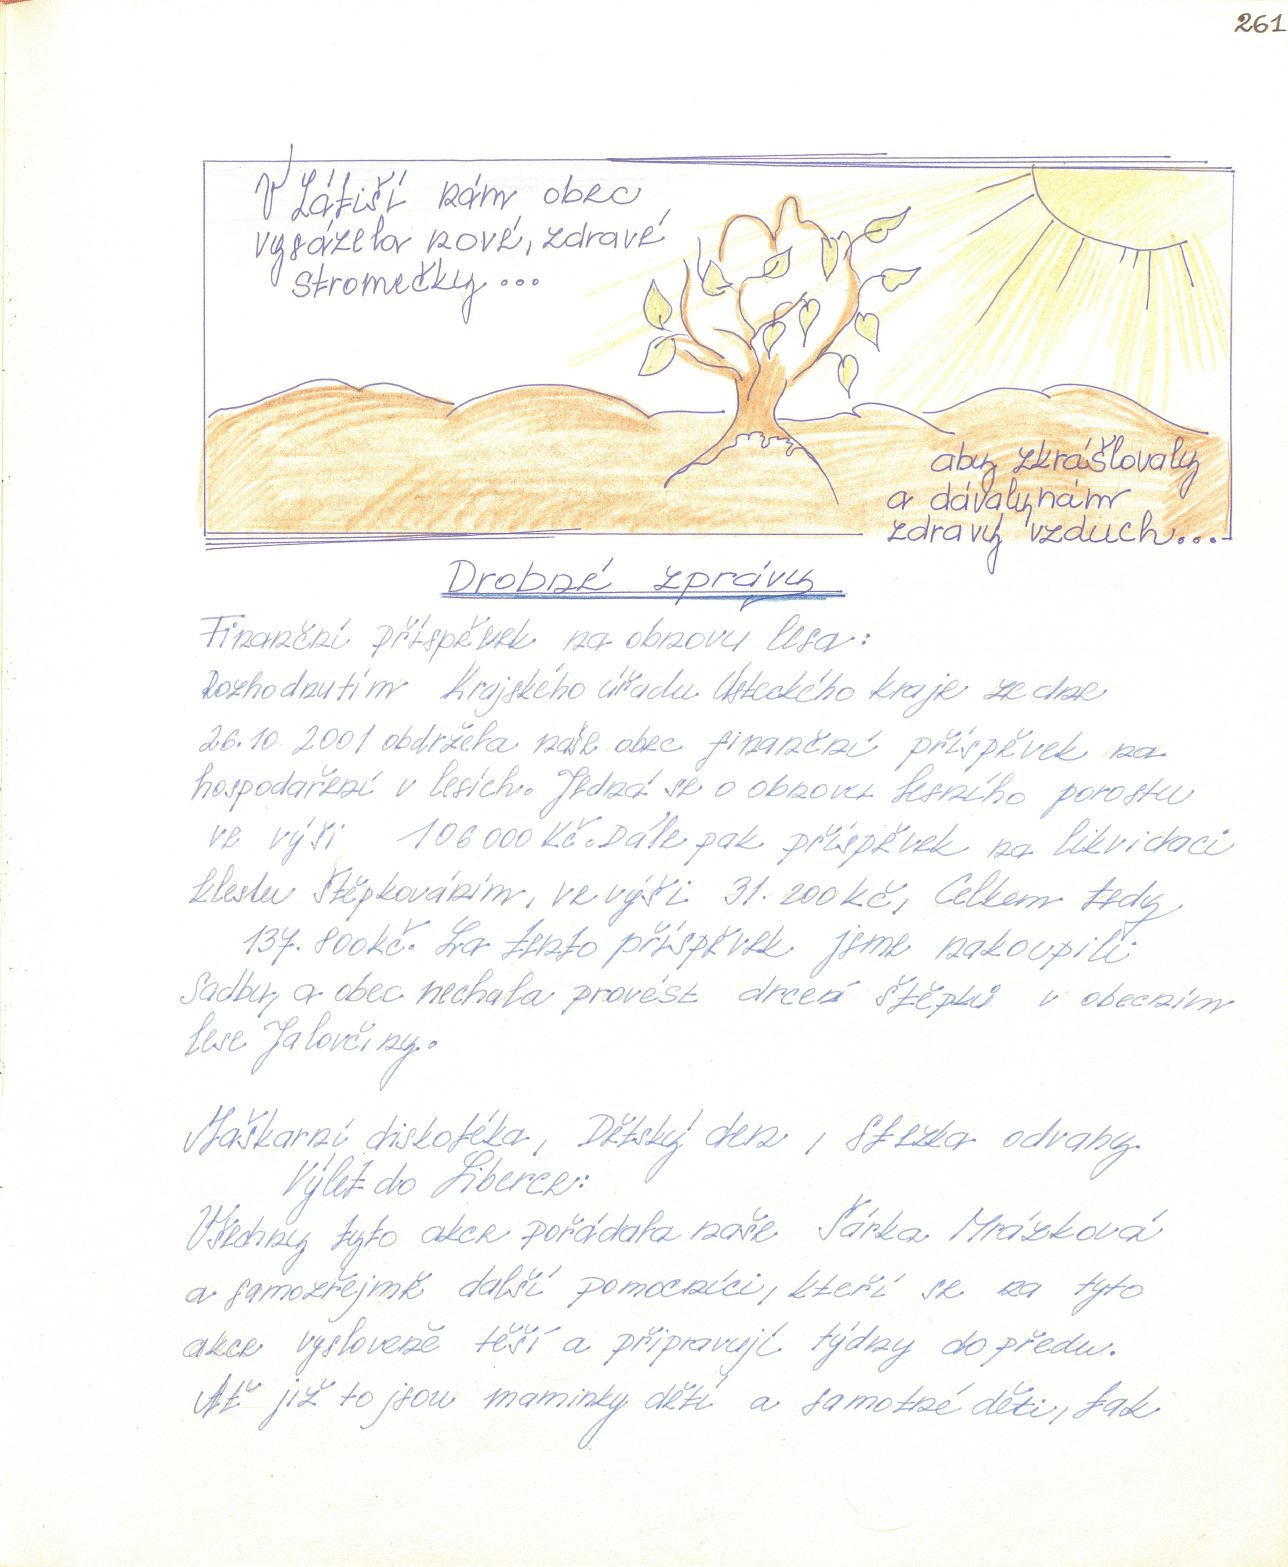 261
V Zátiší nám obec
vysázela nové, zdravé
stromečky...
aby zkrášlovaly
a dávaly nám
zdravý vzduch....
Drobné zprávy
Finanční příspěvek na obnovu lesa:
Rozhodnutím Krajského úřadu Ústeckého kraje ze dne
26.10. 2001 obdržela naše obec finanční příspěvek na
hospodaření v lesích. Jedná se o obnovu lesního porostu
ve výši 106 000 Kč. Dále pak příspěvek na likvidaci
klestu štěpkováním, ve výši 31.200 Kč, Celkem tedy
137.800 kč. Za tento příspěvek jsme nakoupili
sadby a obec nechala provést drcení štěpků v obecním
lese Jalovčiny.
Maškarní diskotéka, Dětský den, Stezka odvahy
Výlet do Liberce:
Všechny tyto akce pořádala naše Šárka Mrázková
a samozřejmě další pomocníci, kteří se na tyto
akce vysloveně těší a připravují týdny dopředu.
Ať již to jsou maminky dětí a samotné děti, tak